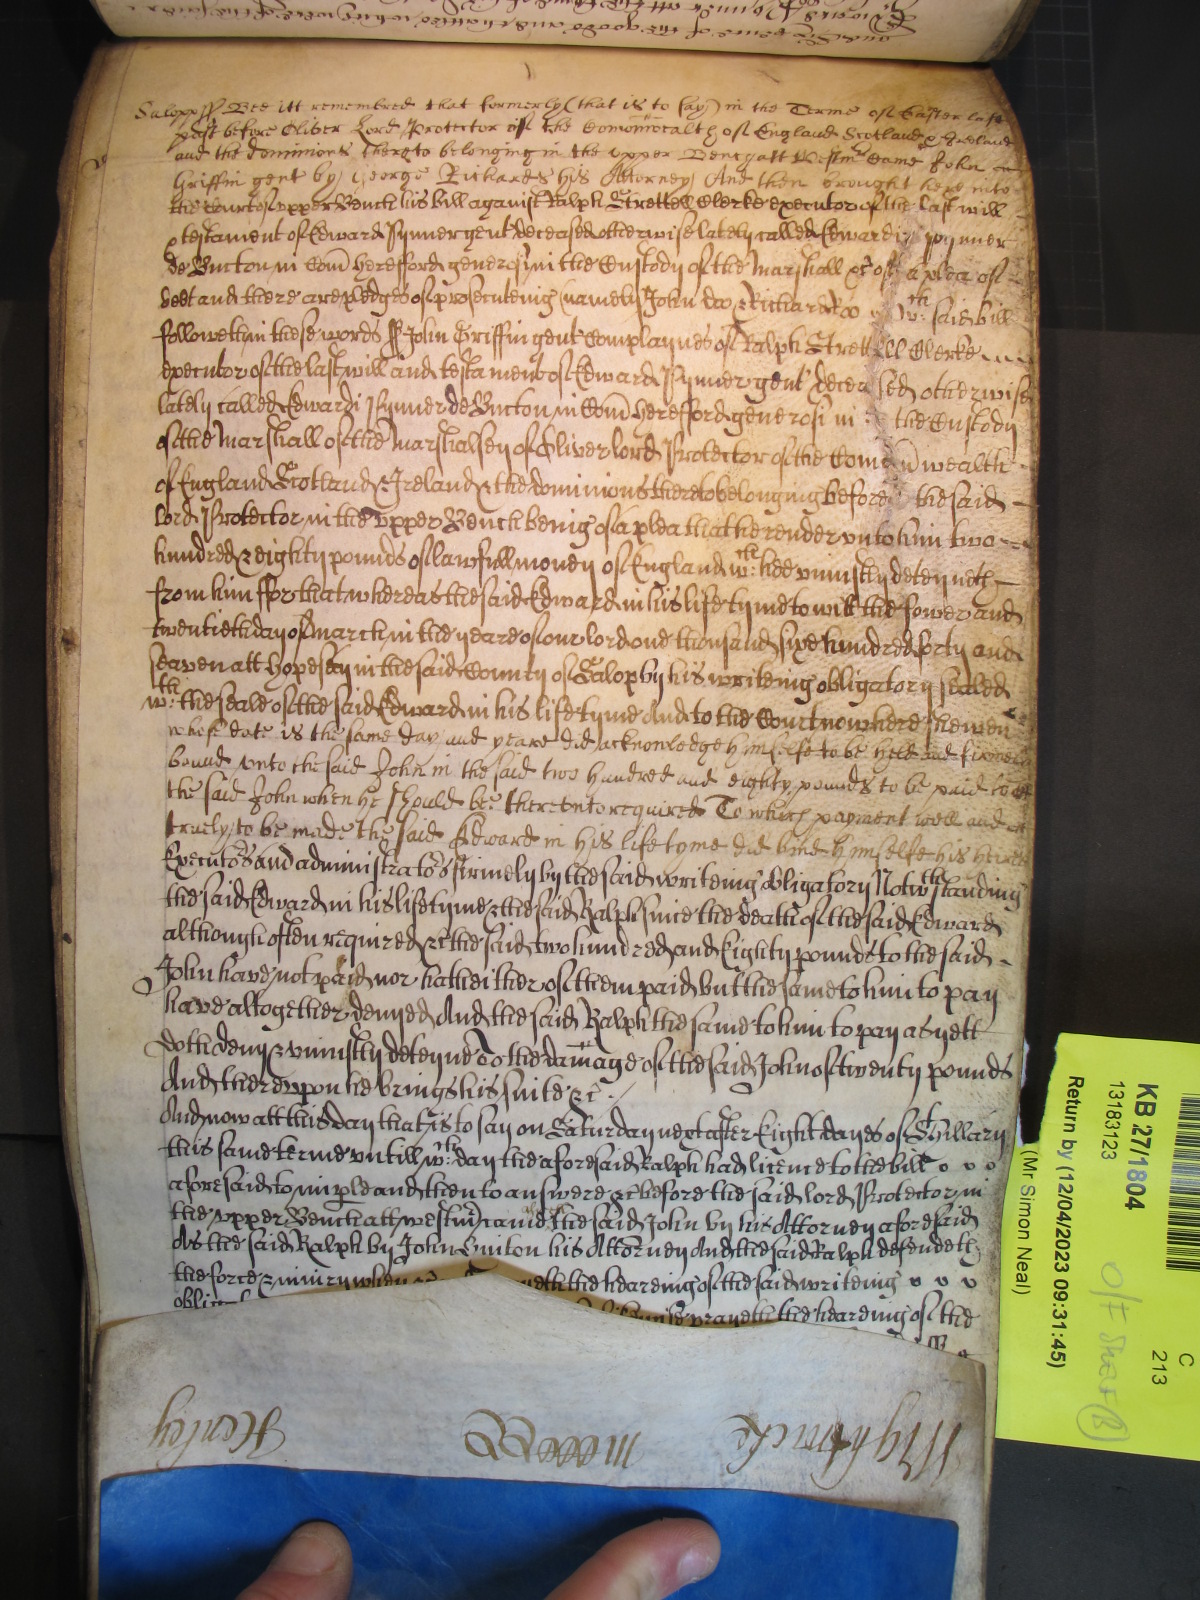 Salopp ss Bee itt remembred that formerly (that is to say) in the Terme of Easter last
past before Oliver Lord Protector of the Comonwealth of England Scotland & Ireland
and the dominions thereto belonging in the upper Bench att Westmr Came John
Griffin gent by George Richards his Attorney And then brought here into
the Court of upper Bench his bill against Ralph Strettell Clerke executor of the last will
& testament of Edward Pynner gent deceased otherwise lately called Edwardi Pynner
de Bucton in Com Herefford generosi in the Custody of the Marshall &c of a plea of
debt and there are pledges of prosecuteing namely John doo & Richard Roo wch: said bill
followeth in these words ss John Griffin gent Complaynes of Ralph Strettell Clerke
executor of the last will and testament of Edward Pynner gent deceased otherwise
lately called Edwardi Pynner de Bucton in Com Herefford generosi in the Custody
of the Marshall of the Marshalsey of Oliver lord Protector of the Comonwealth
of England Scotland & Ireland & the dominions thereto belonging before the said
lord Protector in the upper Bench being of a plea that he render unto him two
hundred & eighty pounds of lawfull money of England wch: hee uniustly deteyneth
from him ffor that whereas the said Edward in his life tyme to witt the fower and
twentieth day of March in the yeare of our lord one thousand six hundred forty and
seaven att Hopesay in the said County of Salop by his writeing obligatory sealed
wth: the seale of the said Edward in his life tyme And to the Court now here shewen
whose date is the same day and yeare did acknowledge himselfe to be held and firmely
bound unto the said John in the said two hundred and eighty pounds to be paid to
the said John when he should bee thereunto required To which payment well and
truely to be made the said Edward in his life tyme did bind himselfe his heires
Executors and administrators firmely by the said writeing obligatory Notwthstanding
the said Edward in his life tyme & the said Ralph since the death of the said Edward
although often required &c the said two hundred and Eighty pounds to the said
John have not paid nor hath either of them paid but the same to him to pay
have altogether denyed And the said Ralph the same to him to pay as yett
doth deny & uniustly deteyne To the damage of the said John of twenty pounds
And thereupon he brings his suite &c
And now att this day that is to say on Saturday next after Eight dayes of St Hillary
this same terme untill wch: day the aforesaid Ralph had licence to the bill
aforesaid to imple and then to answere &c before the said lord Protector in
the upper Bench att Westmr came the said John by his Attorney aforesaid
As the said Ralph by John his Attorney And the said Ralph defendeth
the force & iniury when &c the heareing of the said writeing
prayeth the heareing of the
Henley
Mightwicke
KB 27/1804
13183123
Return by (12/04/2023 09:31:45)
(Mr Simon Neal)
C
213